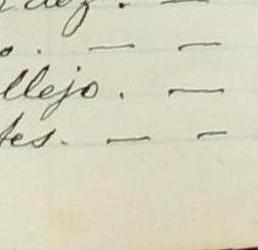 dez. —
o. — —
llejo. —
tes. — —